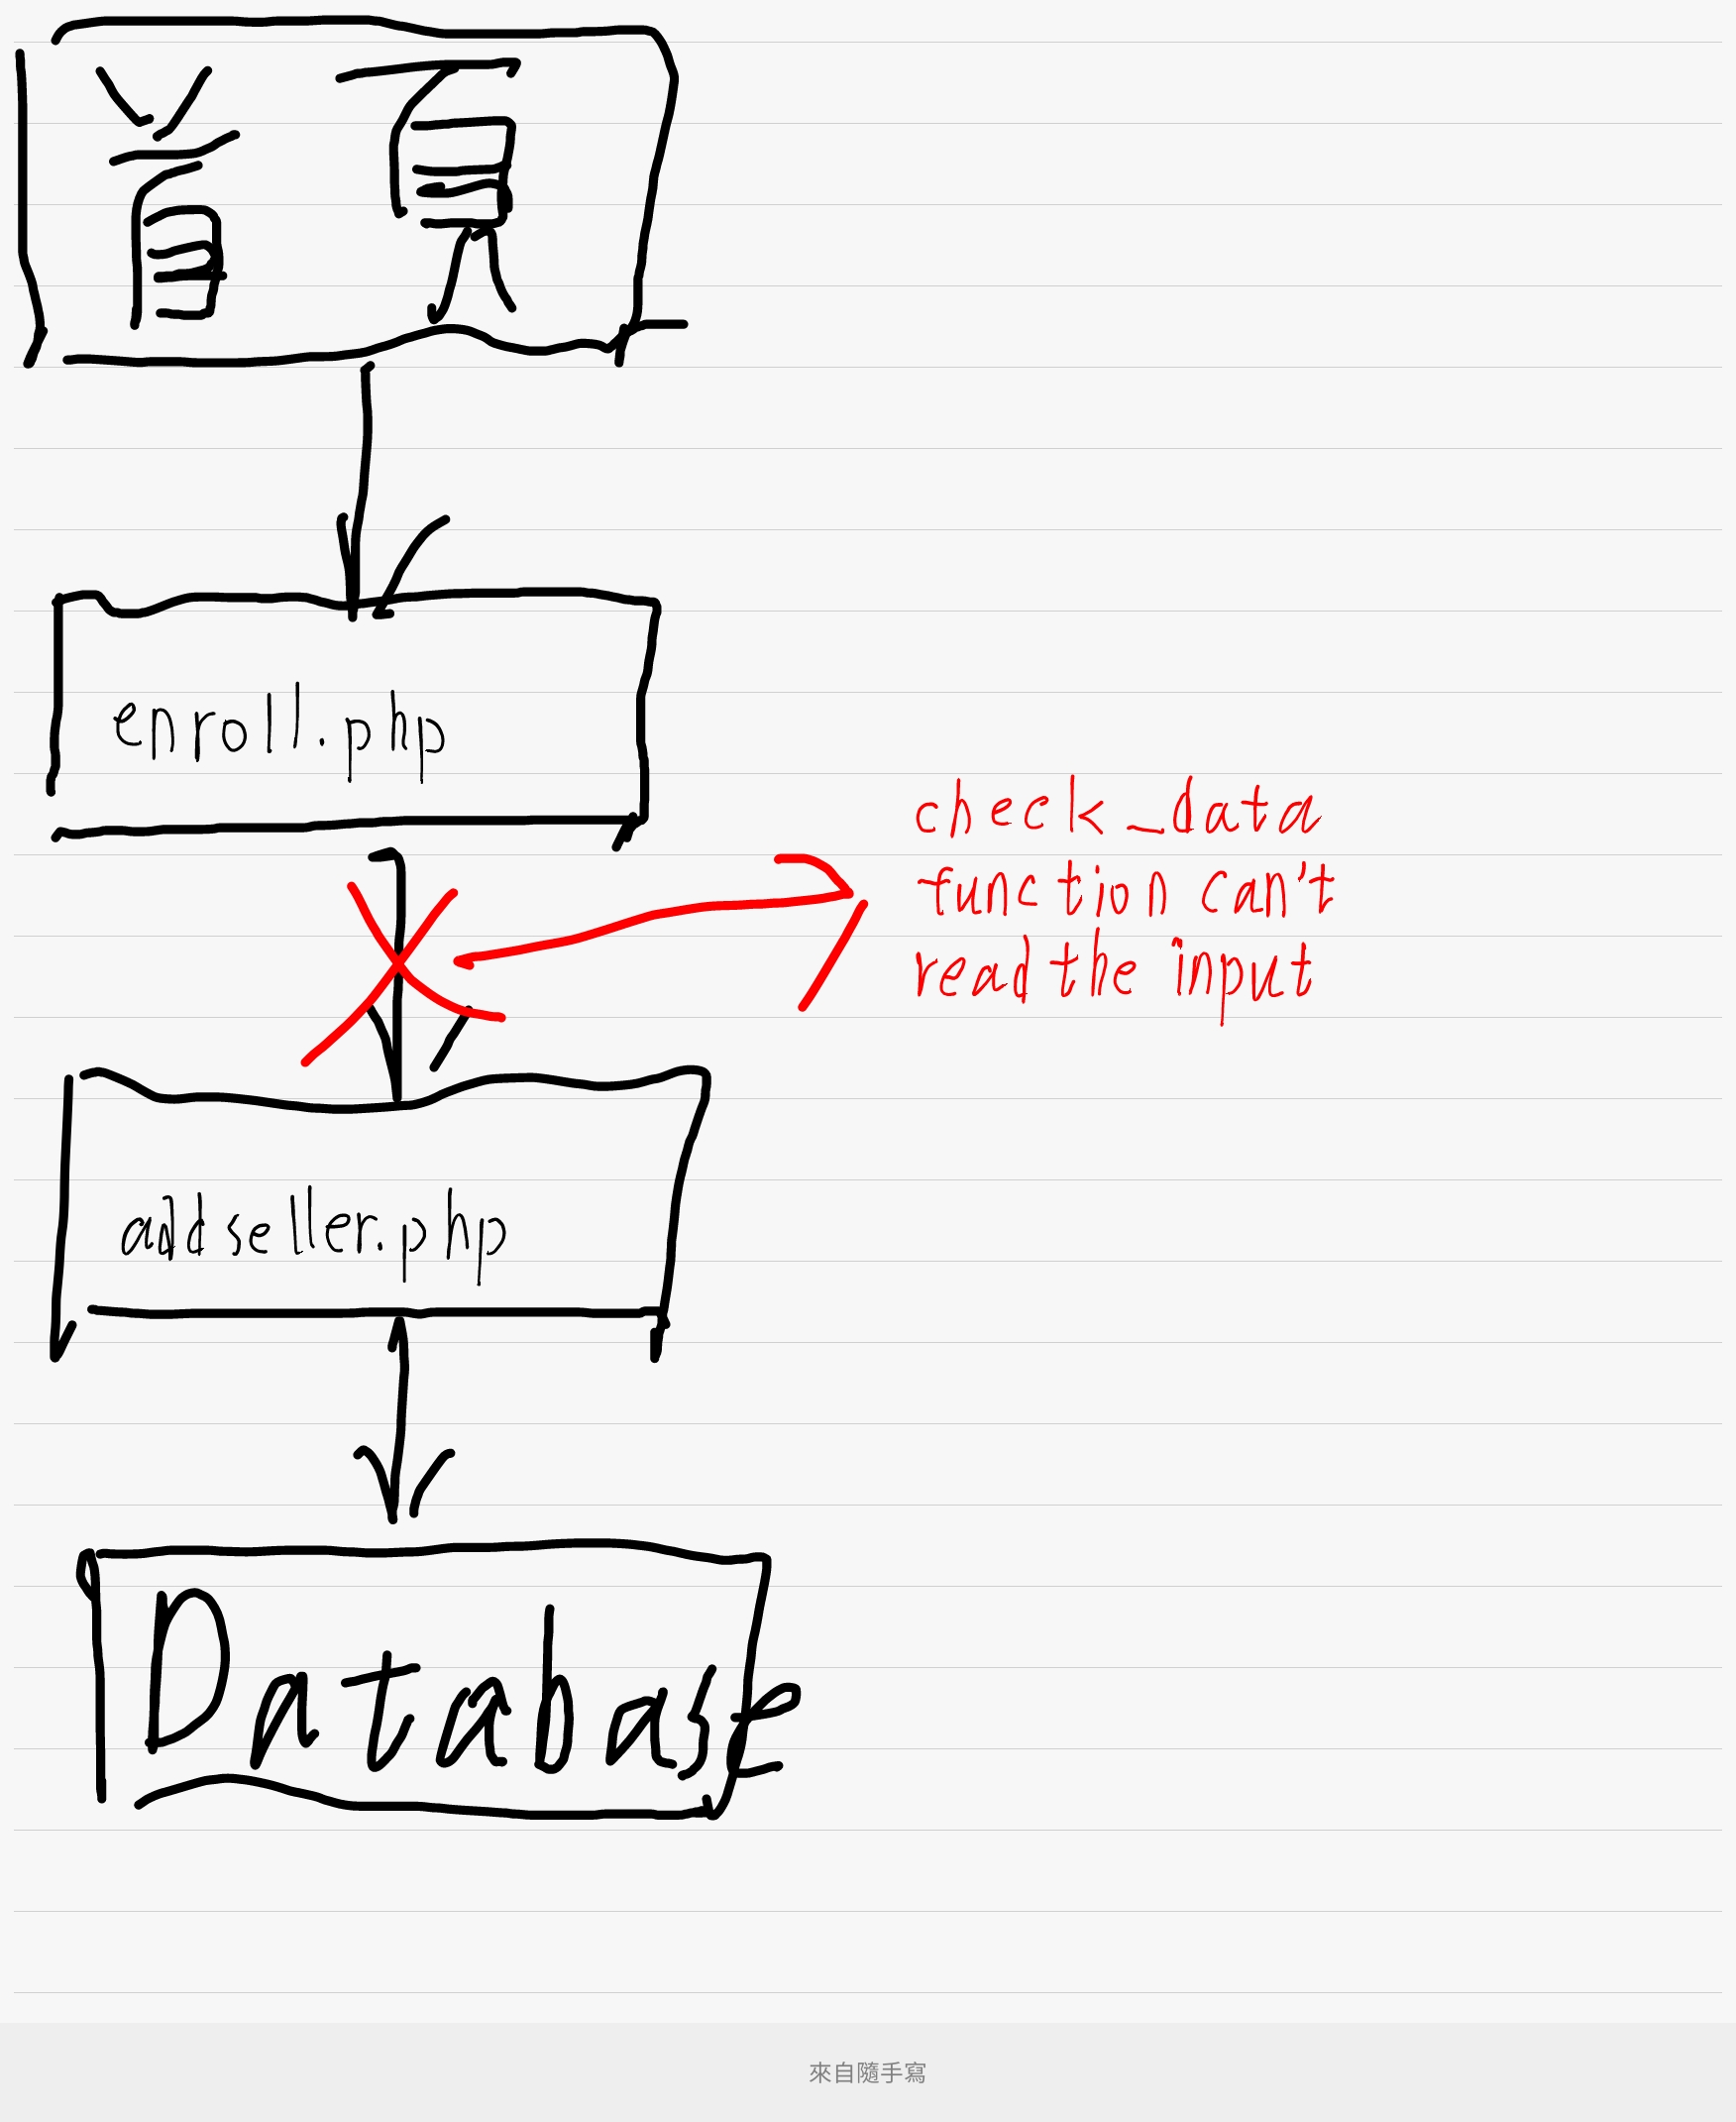 首頁
enroll.php
check_data
function can't
read the input
addseller.php
Database
來自隨手寫